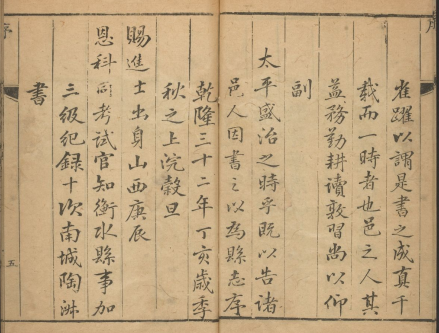 雀躍以謂是書之成真千
載而一時者也邑之人其
益務勤耕讀敦習尚以仰
副
太平盛治之時乎既以告諸
邑人因書之以為縣志序
乾隆三十二年丁亥歲季
秋之上浣穀旦
賜進士出身山西庚辰
恩科同考試官知衡水縣事加
三級紀録十次南城陶淑
書
序
五